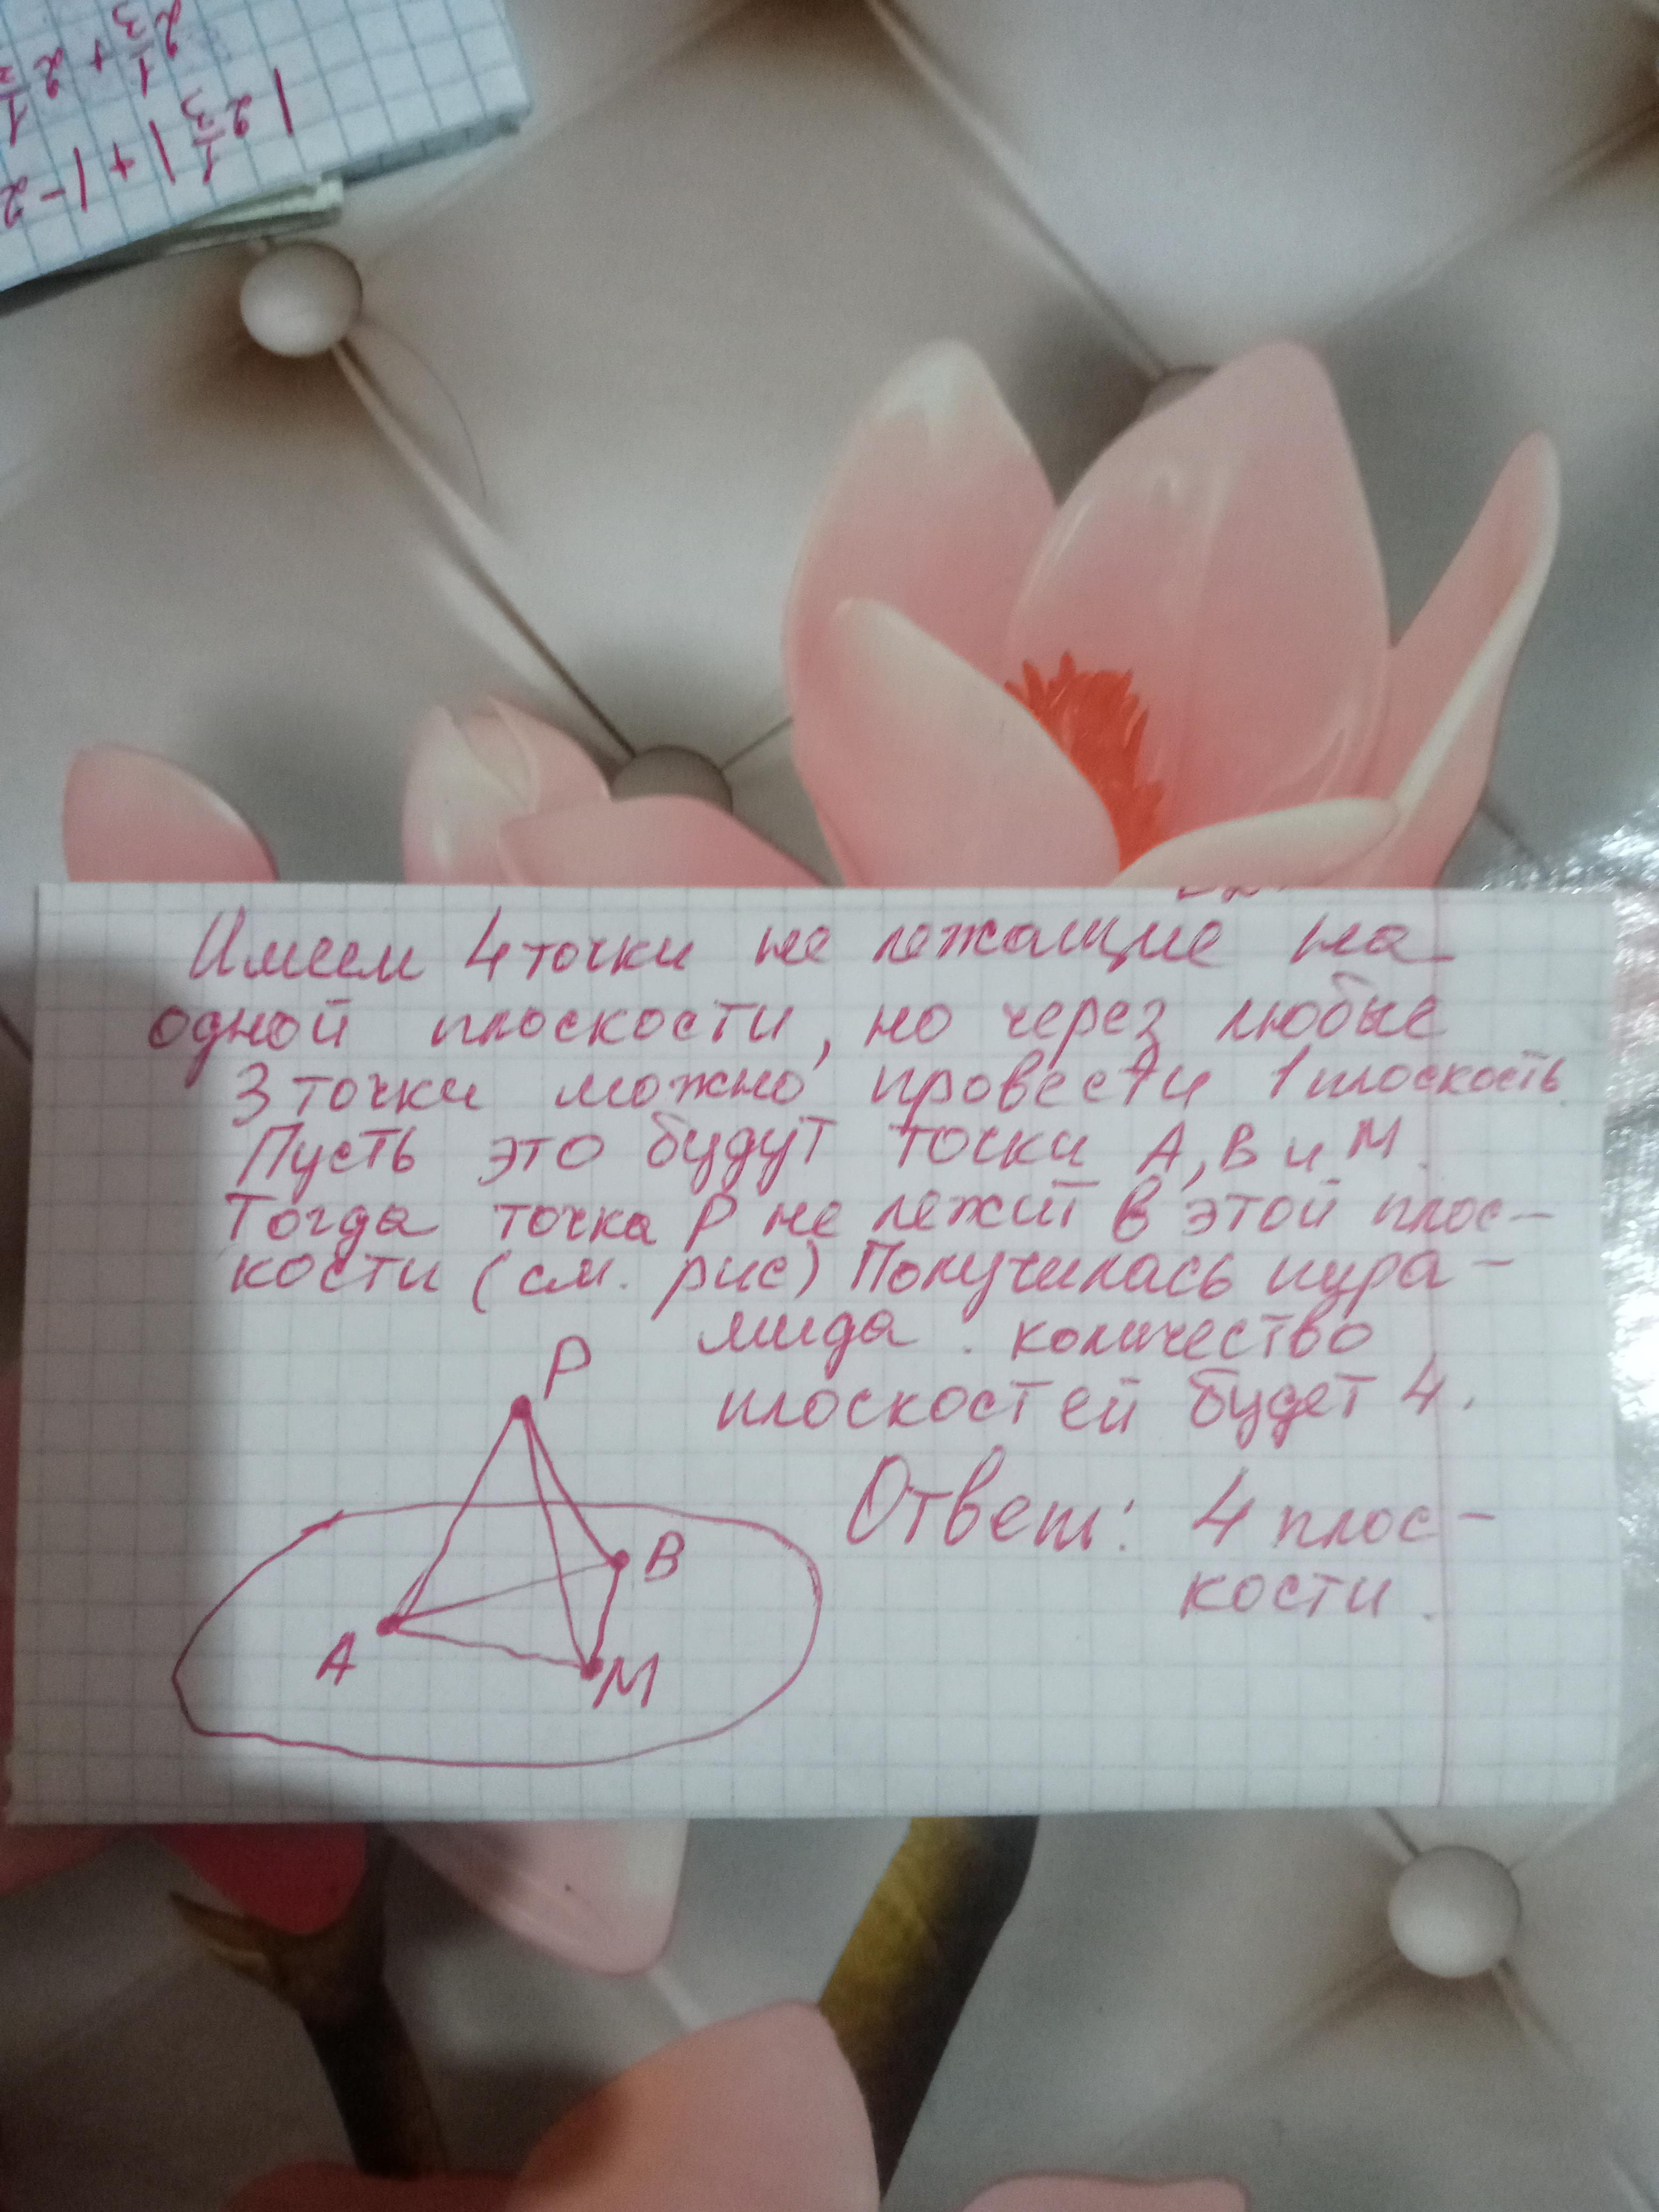 2 1/3 + 2 1
| 2 1/3 | + | - 2
Имеем 4 точки не лежащие на
одной плоскости, но через любые
3 точки можно провести 1 плоскость
Пусть это будут точки A, B и M.
Тогда точка P не лежит в этой плос-
кости (см. рис) Получилась пира-
мида. количество
плоскостей будет 4.
Ответ: 4 плос-
кости.
P
B
A
M